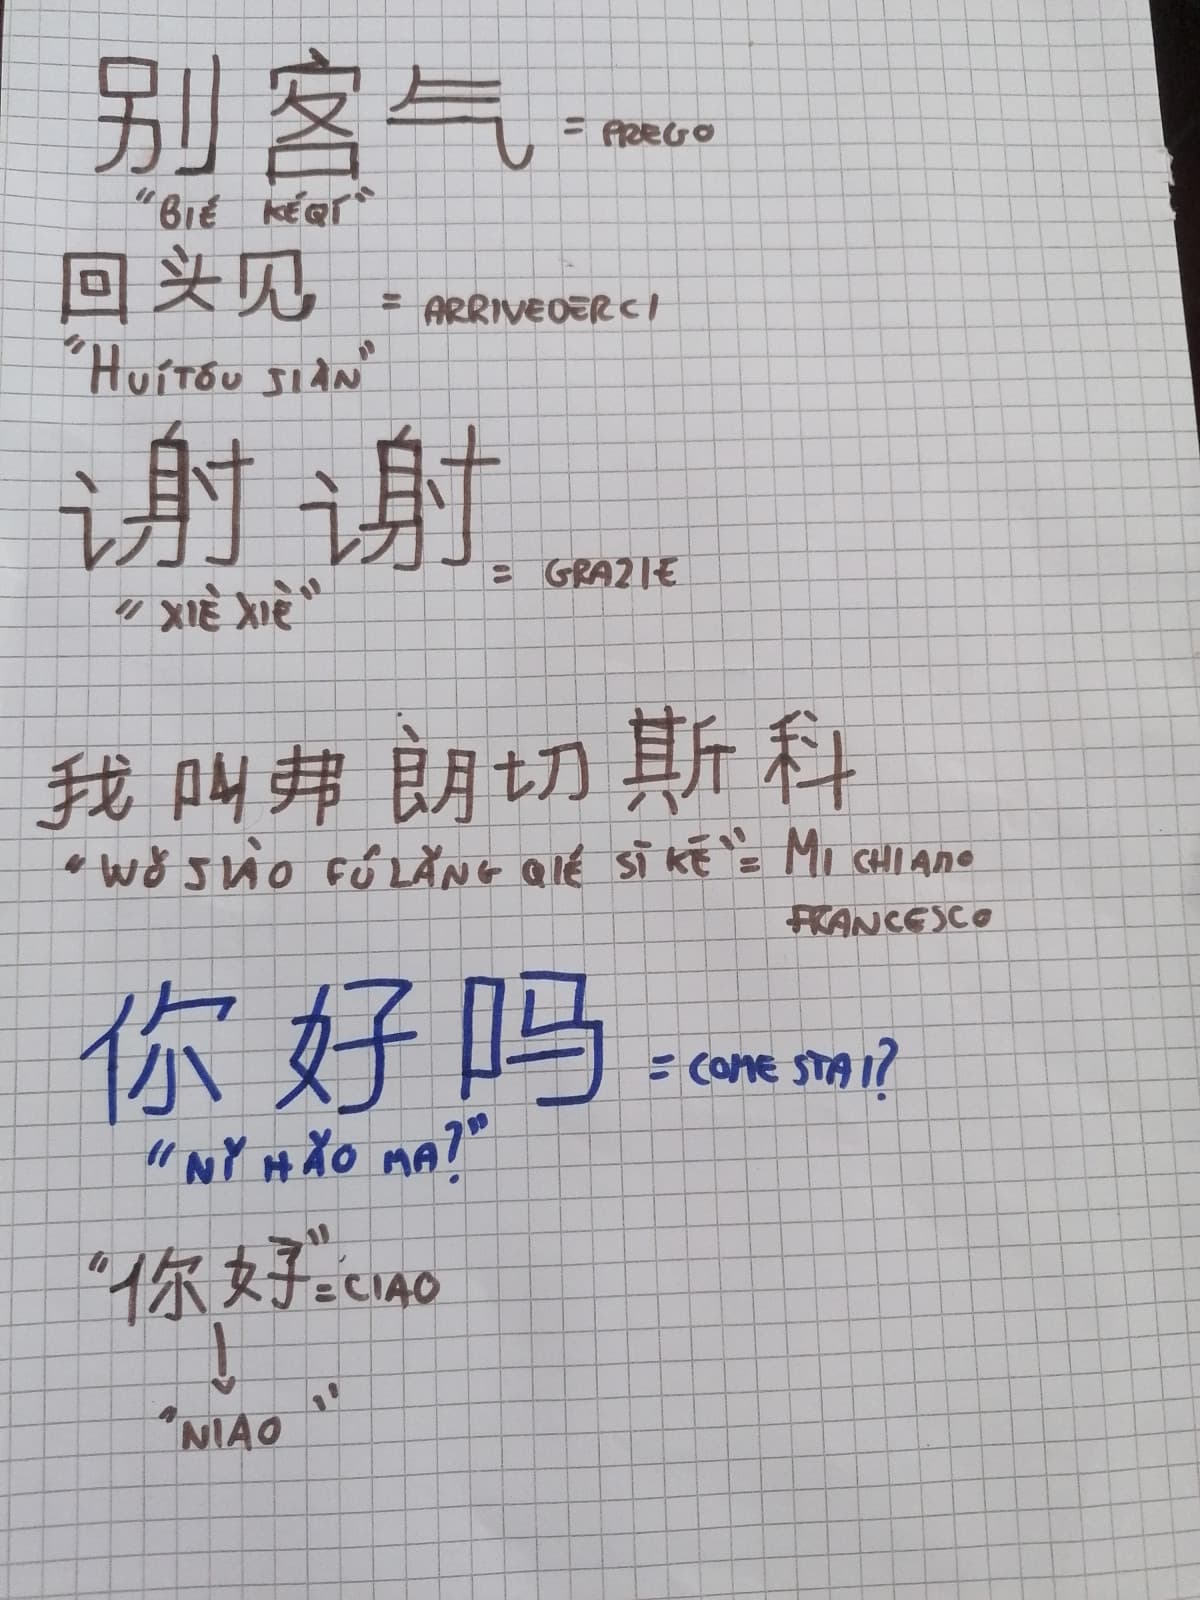 别客气 = PREGO
"BIÉ KÉQI"
回头见 = ARRIVEDERCI
"HUÍTÓU JIÀN"
谢谢 = GRAZIE
"XIÈ XIÈ"
我叫弗朗切斯科
"WǑ JIÀO FÚLǍNG QIÉ SĪ KĒ" = MI CHIAMO
FRANCESCO
你好吗 = COME STAI?
"NǏ HǍO MA?"
"你好" = CIAO
↓
"NIAO"